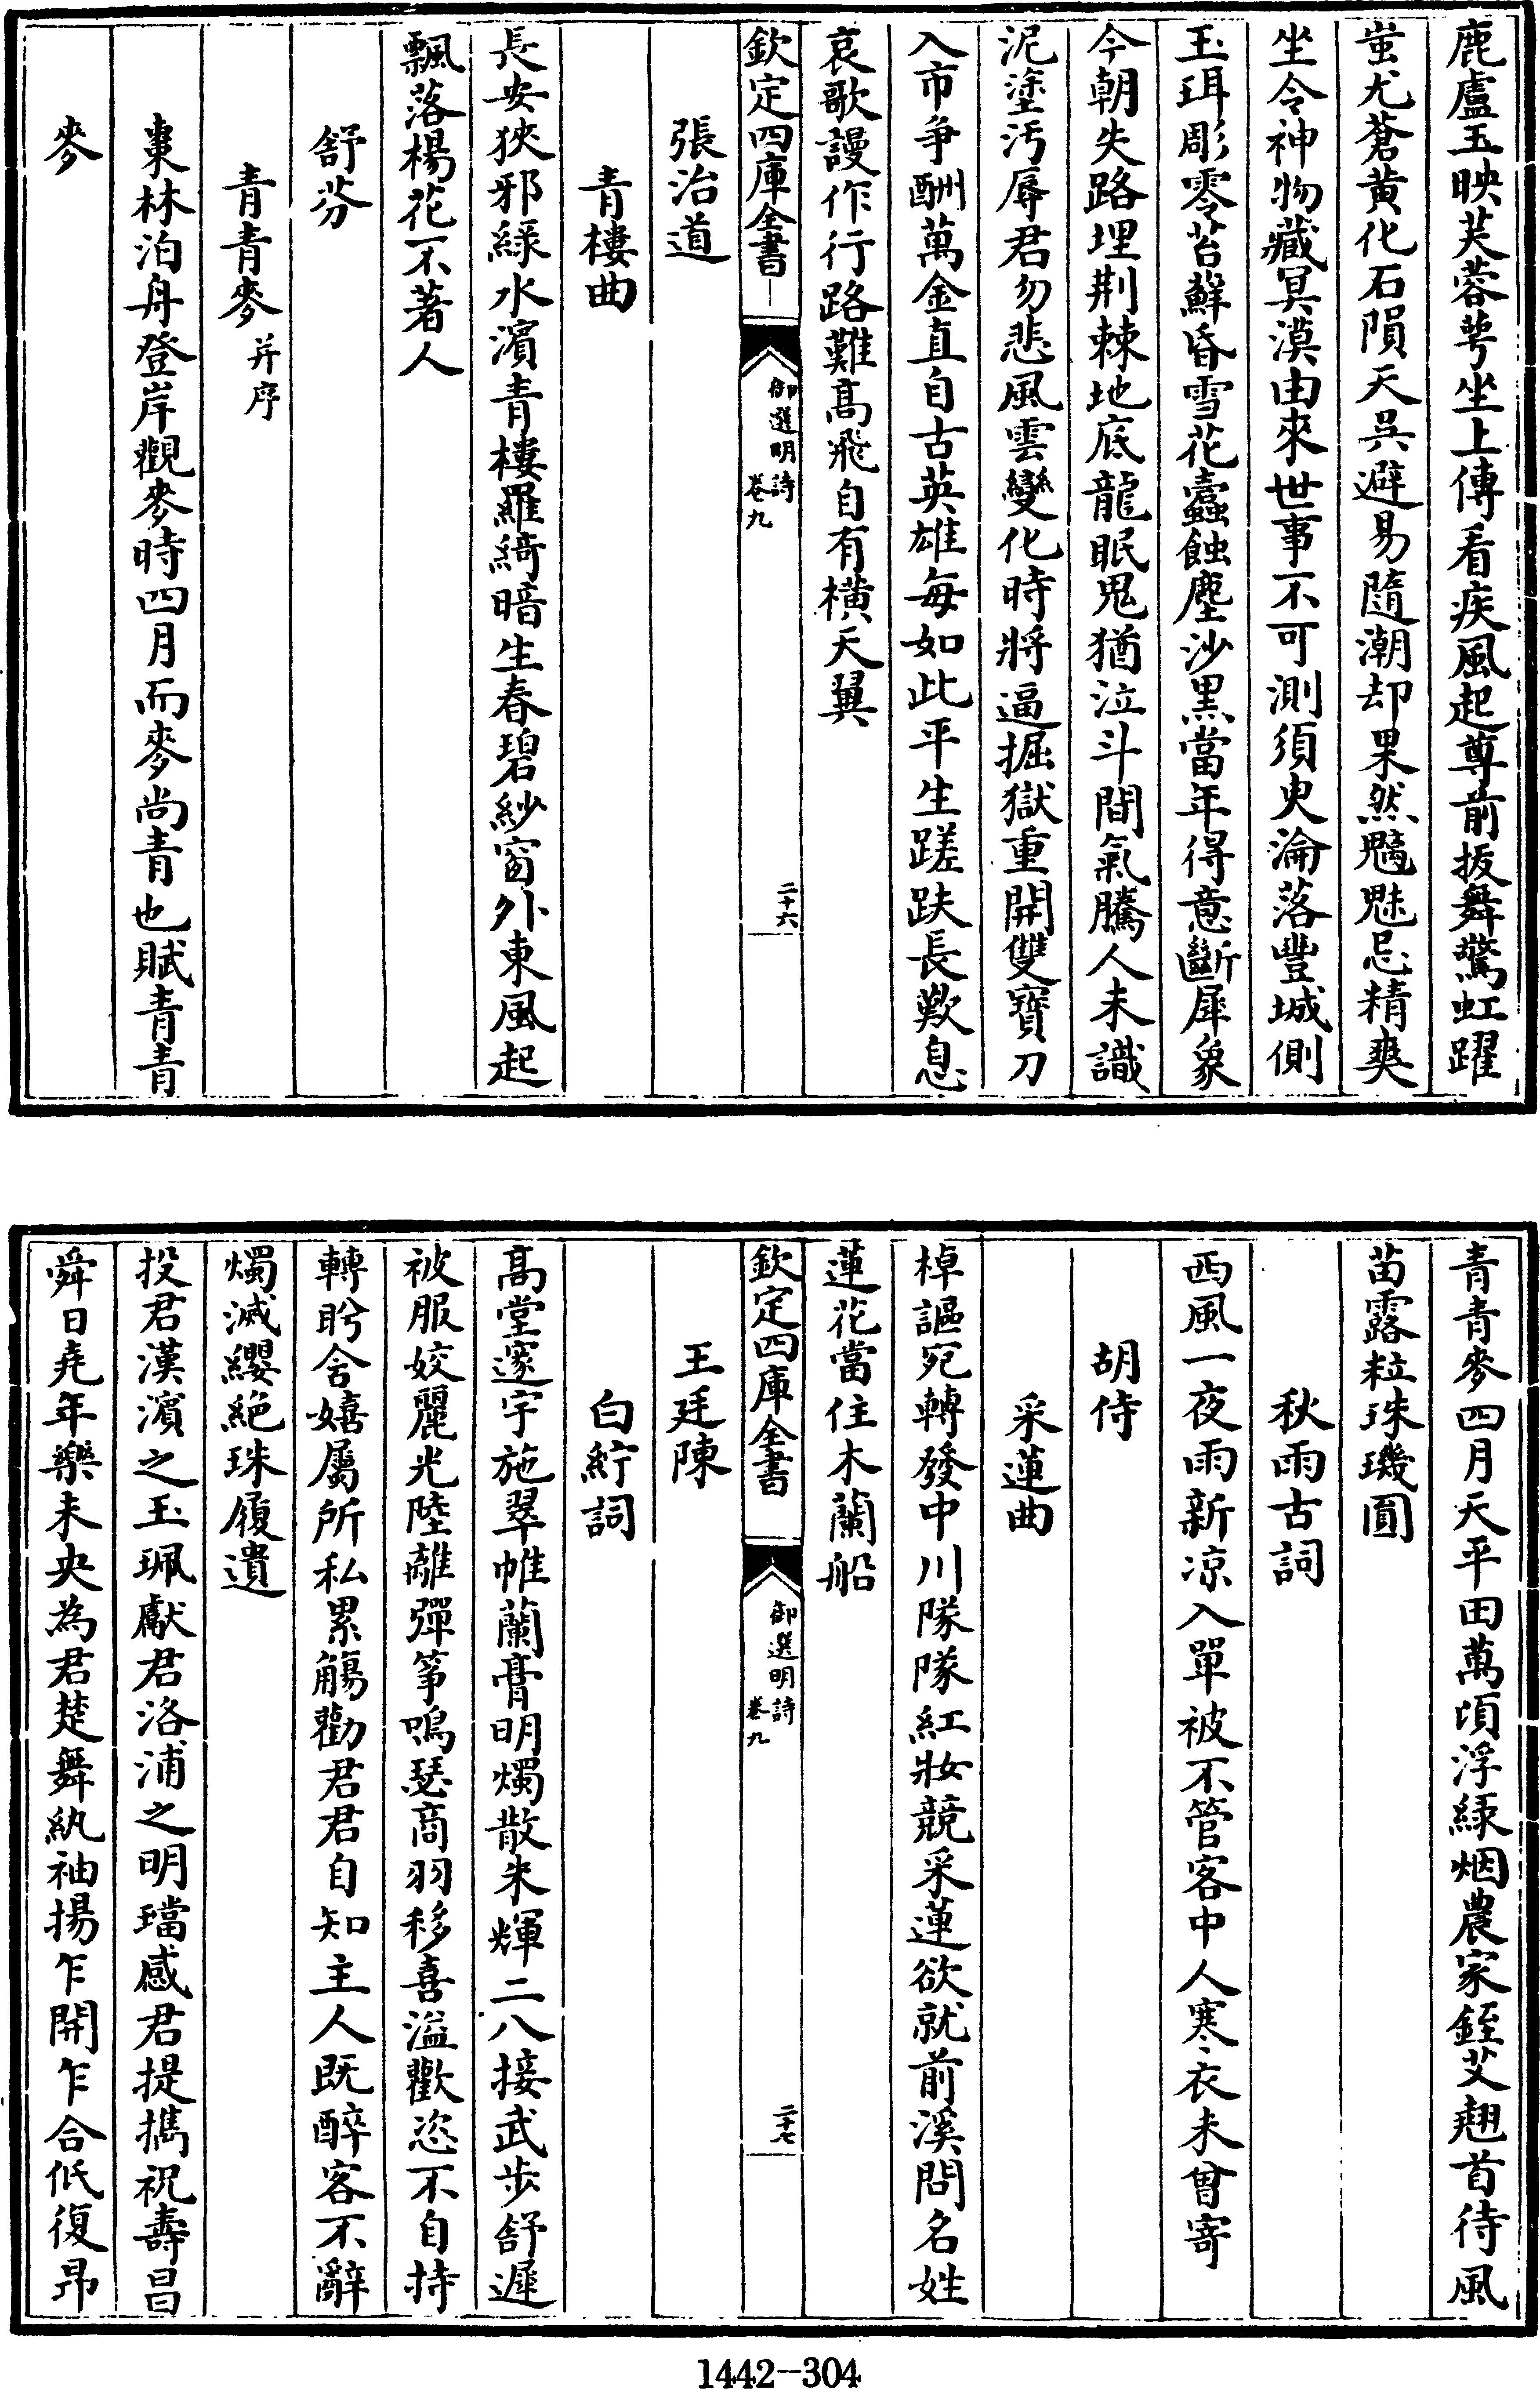 鹿盧玉映芙蓉萼坐上傳看疾風起尊前拔舞驚虹躍
蚩尤蒼黃化石隕天吳避易隨潮却果然魑魅忌精爽
坐令神物藏冥漠由來世事不可測須臾淪落豐城側
玉珥彫零苔蘚昏雪花蠹蝕塵沙黑當年得意斷犀象
今朝失路埋荆棘地底龍眠鬼猶泣斗間氣騰人未識
泥塗汚辱君勿悲風雲變化時將逼掘獄重開雙寶刀
入市争酬萬金直自古英雄毎如此平生蹉跌長歎息
哀歌謾作行路難髙飛自有横天翼
欽定四庫全書
御選明詩
卷九
二十六
張治道
青樓曲
長安狹邪緑水濵青樓羅綺暗生春碧紗窗外東風起
飄落楊花不著人
舒芬
青青麥并序
棗林泊舟登岸觀麥時四月而麥尚青也賦青青
麥
青青麥四月天平田萬頃浮緑烟農家銍艾翹首待風
苗露粒珠璣圓
秋雨古詞
西風一夜雨新凉入單被不管客中人寒衣未曾寄
胡侍
采蓮曲
棹謳宛轉發中川隊隊紅妝競采蓮欲就前溪問名姓
蓮花當住木蘭船
欽定四庫全書
御選明詩
卷九
二十七
王廷陳
白紵詞
髙堂邃宇施翠帷蘭膏明燭散朱輝二八接武步舒遲
被服姣麗光陸離彈筝鳴瑟商羽移喜溢歡恣不自持
轉盻含嬉屬所私累觴勸君君自知主人既醉客不辭
燭滅纓絶珠履遺
投君漢濵之玉珮獻君洛浦之明璫感君提攜祝壽昌
舜日堯年樂未央為君楚舞紈袖揚乍開乍合低復昂
1442-304